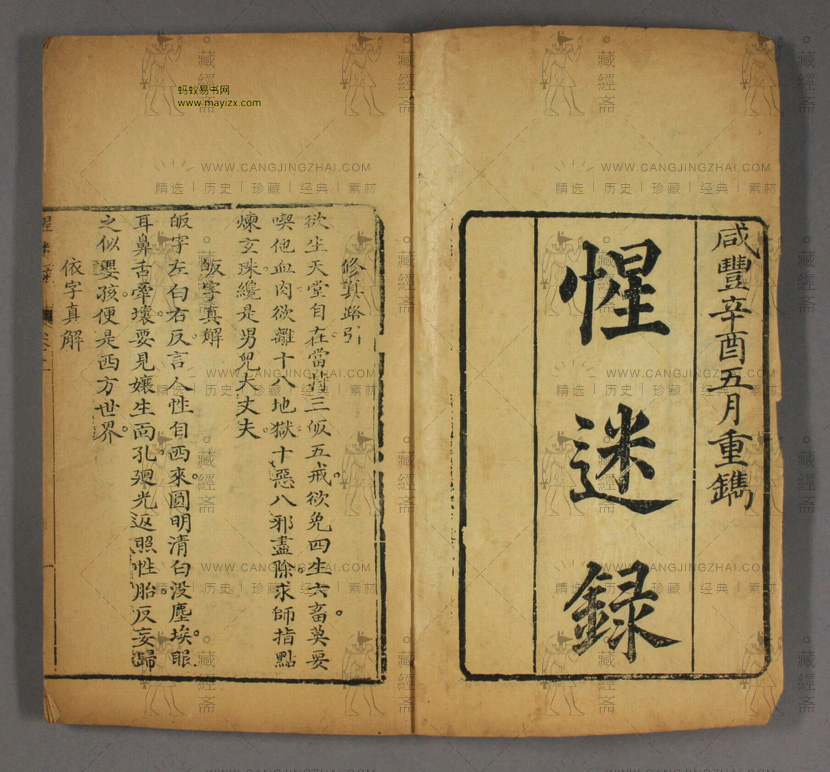 咸豐辛酉五月重鐫
惺迷錄
修真路引
欲生天堂自在當持三皈五戒欲免四生六畜莫要
喫他血肉欲離十八地獄十惡八邪盡除求師指點
煉玄珠纔是男兒大丈夫
皈字真解
皈字左白右反言人性自西來圓明清白没塵埃眼
耳鼻舌牽壞要見孃生面孔廻光返照性胎反妄歸
之似嬰孩便是西方世界
依字真解
蚂蚁易书网
www.mayizx.com
藏經斋
WWW.CANGJINGZHAI.COM
精选 | 历史 | 珍藏 | 经典 | 素材